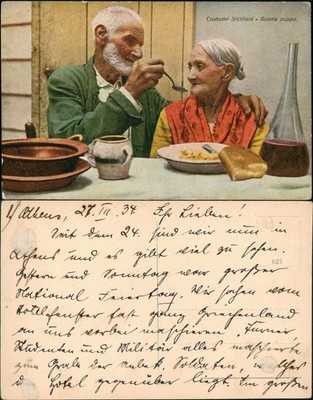 Costumi Siciliani - Buona zuppa.
1/ Athens, 27. III. 34 Ihr Lieben!
Seit dem 24. sind wir nun in
Athens und es gibt viel zu sehen.
Gestern und Sonntag war großer
National Feiertag. Wir sahen vom
Hotelfenster fast ganz Griechenland
an uns vorbei marschieren. Turner
Studenten und Militär alles marschierte
zum Grabe der unbek. Soldaten,
Hotel gegenüber liegt. Im großen
625